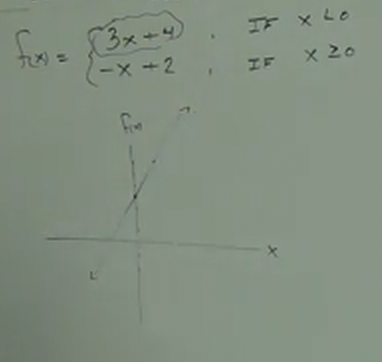 f(x) = { 3x + 4 , IF x < 0
-x + 2 , IF x ≥ 0
f(x)
x